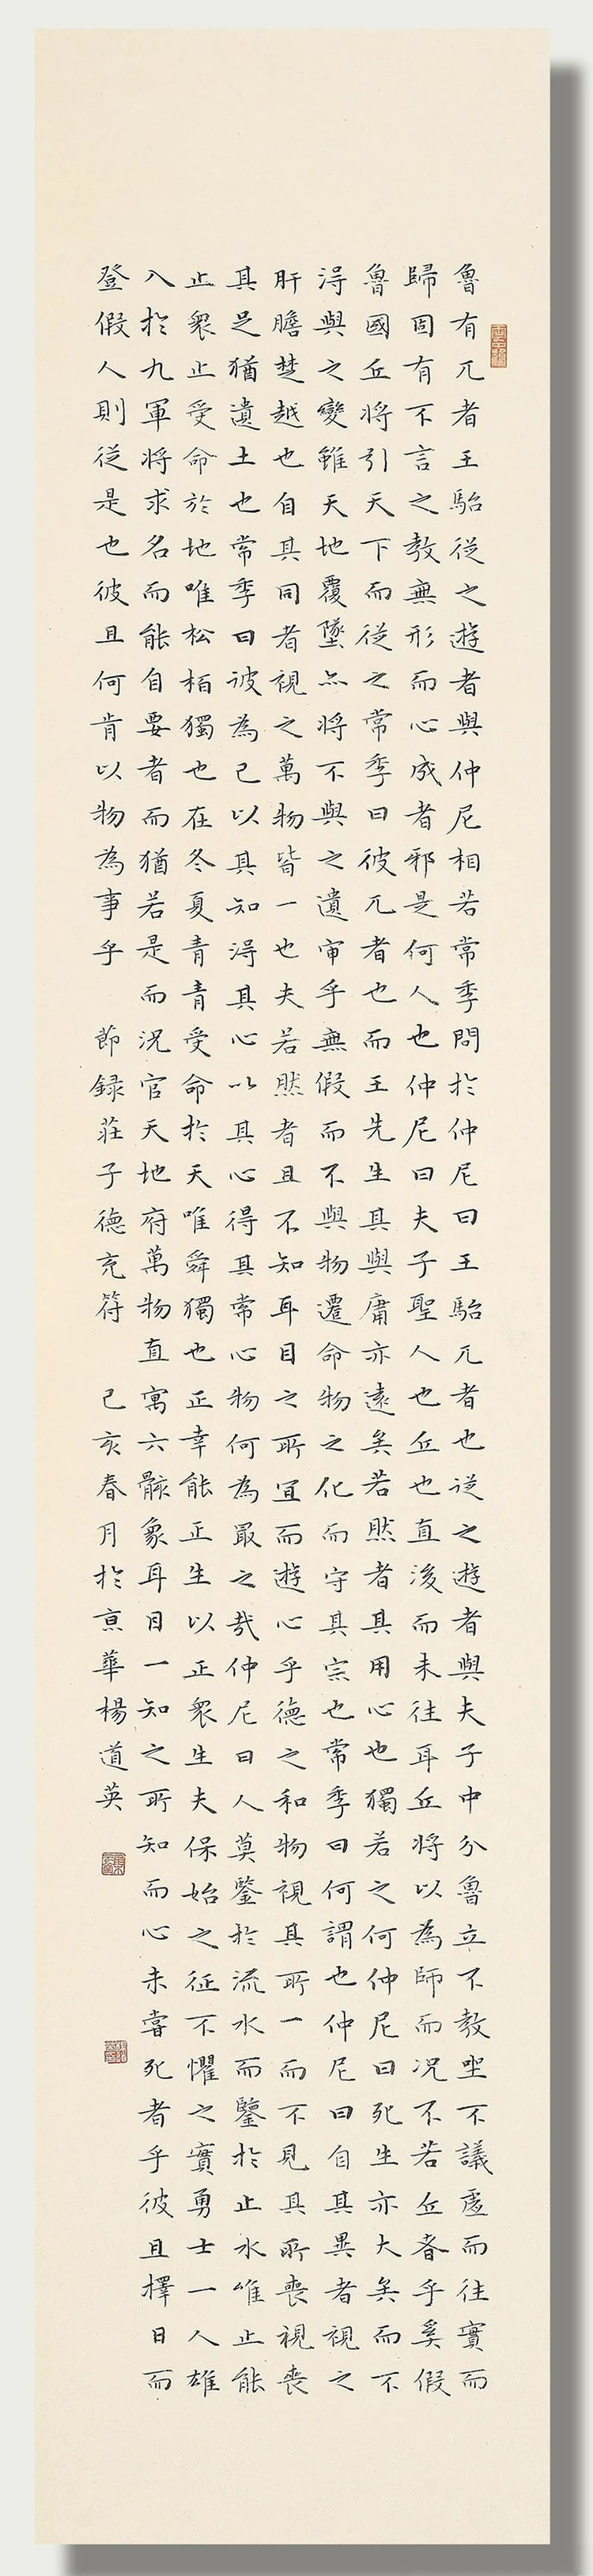 魯有兀者王駘從之遊者與仲尼相若常季問於仲尼曰王駘兀者也從之遊者與夫子中分魯立不教坐不議虛而往實而
歸固有不言之教無形而心成者邪是何人也仲尼曰夫子聖人也丘也直後而未往耳丘將以為師而況不若丘者乎奚假
魯國丘將引天下而從之常季曰彼兀者也而王先生其與庸亦遠矣若然者其用心也獨若之何仲尼曰死生亦大矣而不
得與之變雖天地覆墜亦將不與之遺審乎無假而不與物遷命物之化而守其宗也常季曰何謂也仲尼曰自其異者視之
肝膽楚越也自其同者視之萬物皆一也夫若然者且不知耳目之所宜而遊心乎德之和物視其所一而不見其所喪視喪
其足猶遺土也常季曰彼為己以其知得其心以其心得其常心物何為最之哉仲尼曰人莫鑒於流水而鑒於止水唯止能
止衆止受命於地唯松柏獨也在冬夏青青受命於天唯舜獨也正幸能正生以正衆生夫保始之征不懼之實勇士一人雄
入於九軍將求名而能自要者而猶若是而況官天地府萬物直寓六骸象耳目一知之所知而心未嘗死者乎彼且擇日而
登假人則從是也彼且何肯以物為事乎 節録莊子德充符 己亥春月於京華楊道英